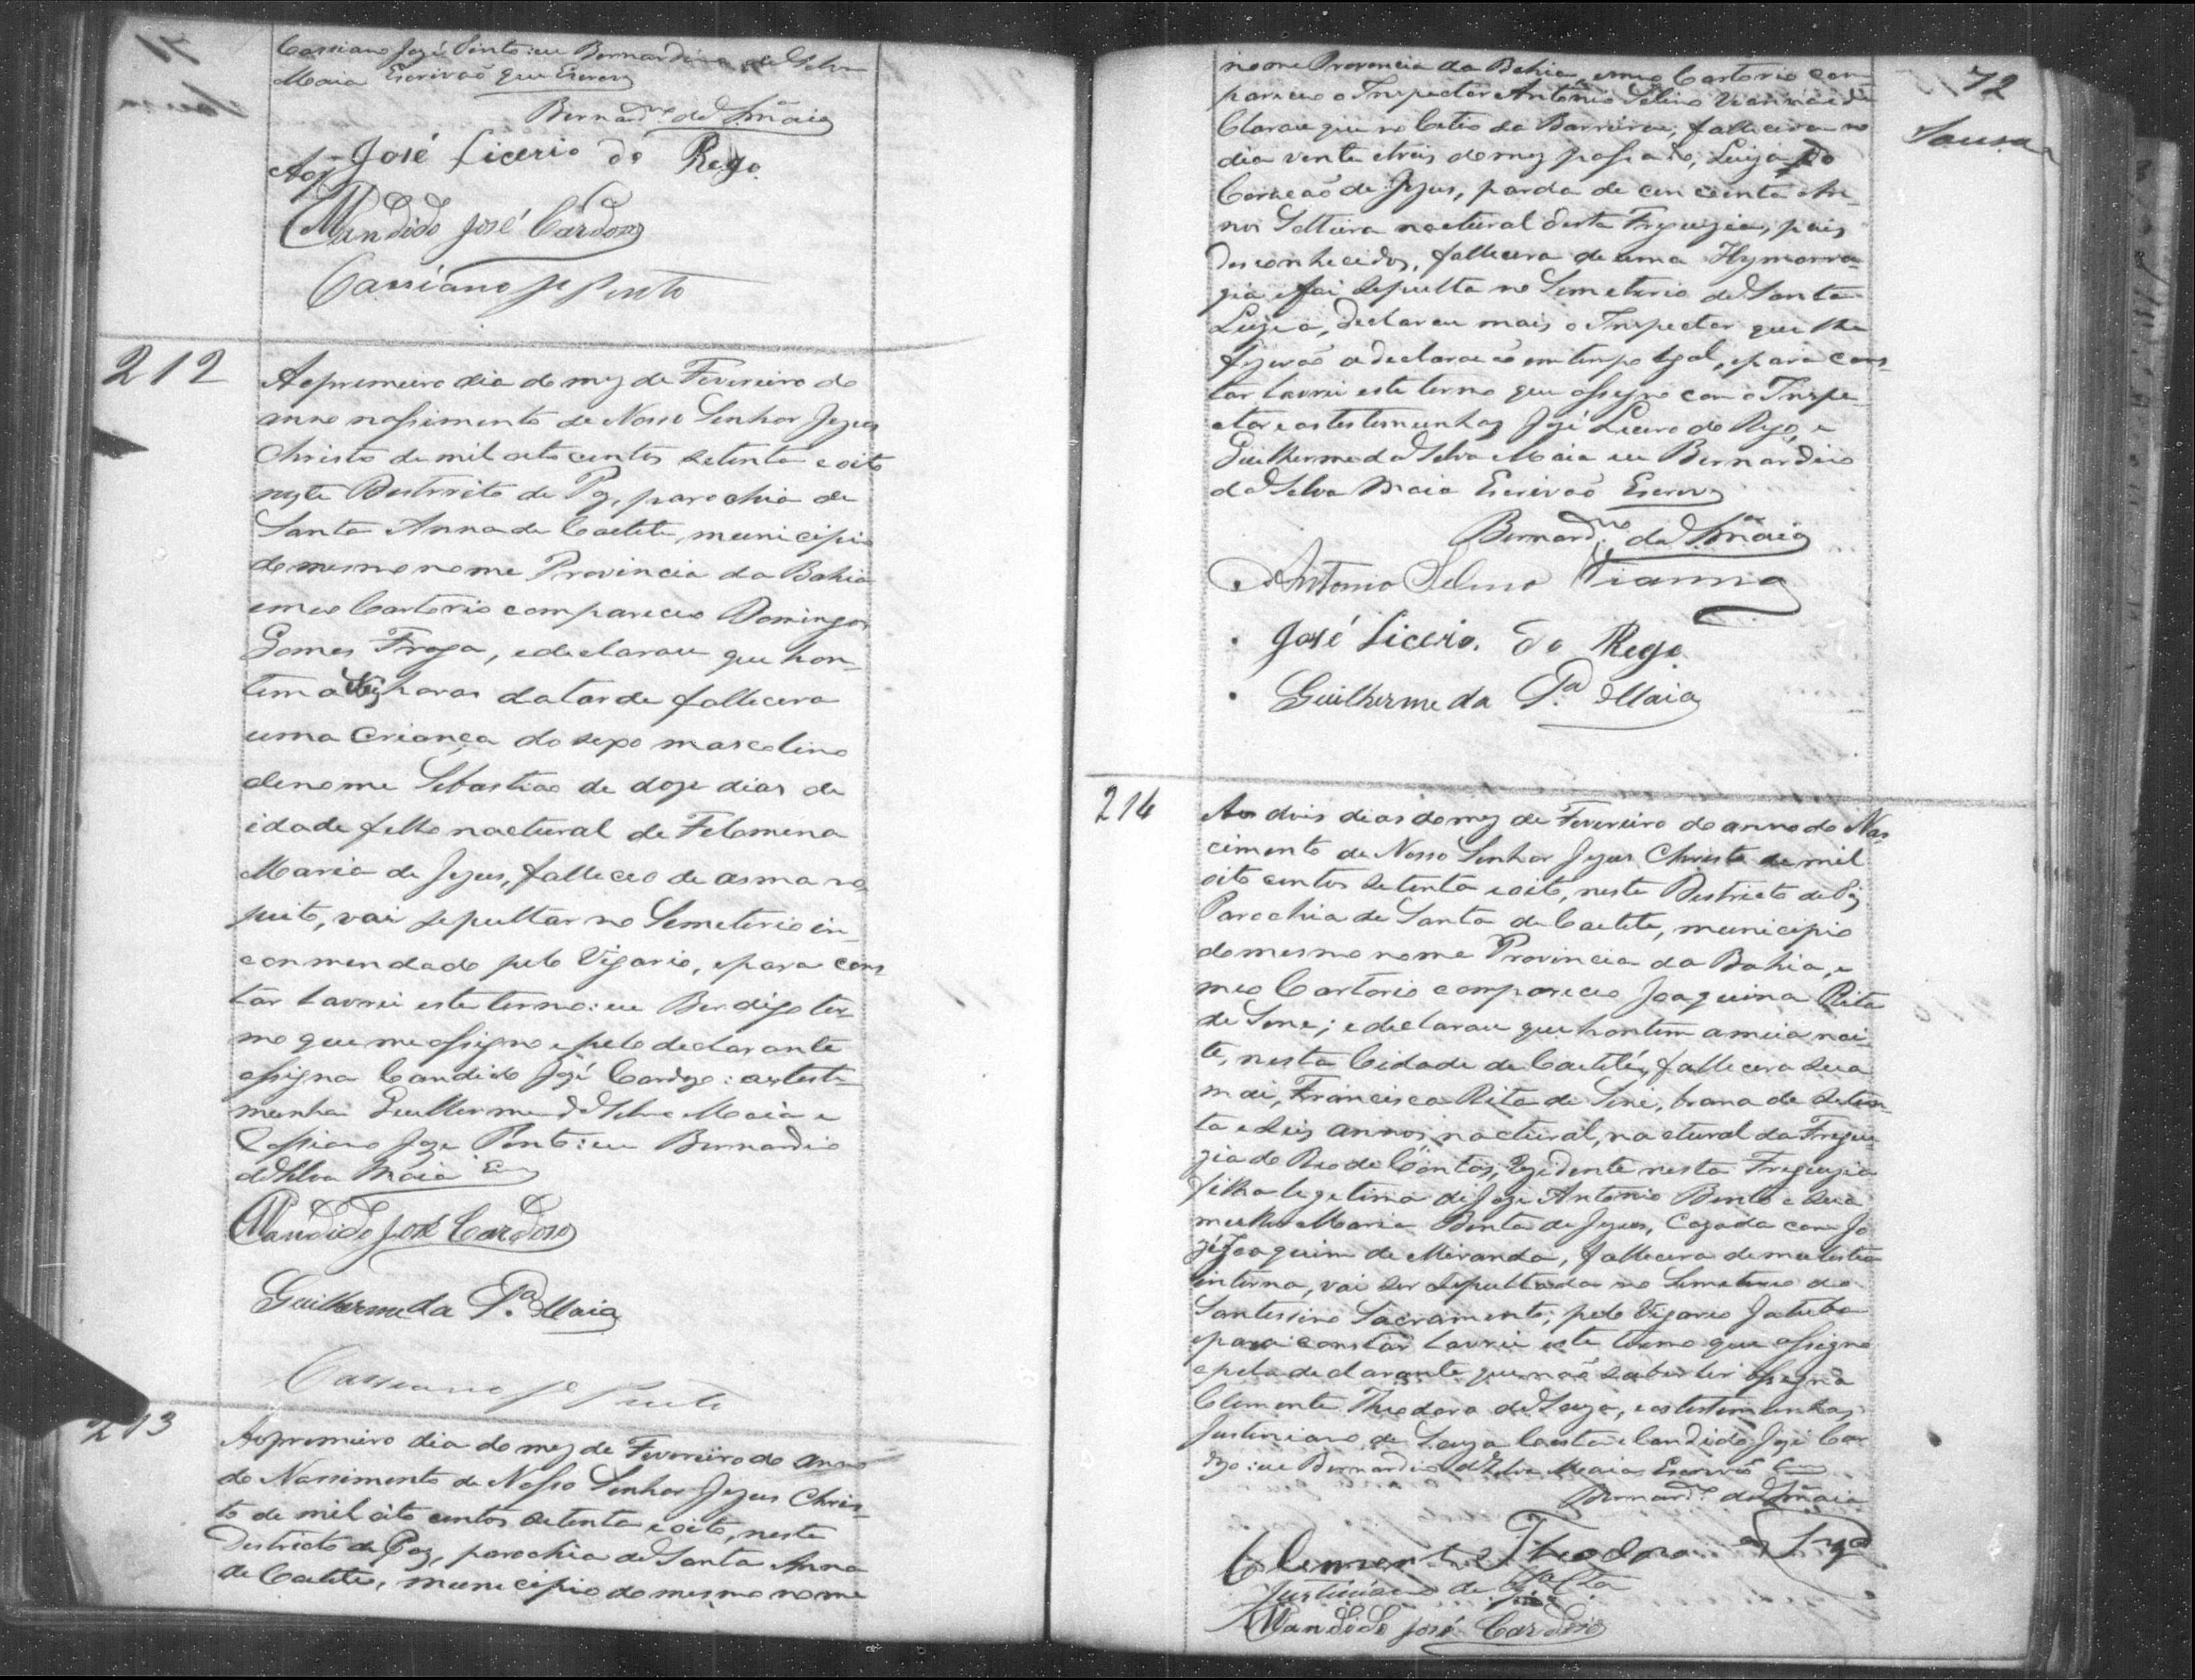 Cassiano José Pinto: eu Bernardino da Silva
Maia Escrivaõ que Escrevy
Bernard.no da S.a Maia
José Licerio do Rego
Candido José Cardozo
Cassiano Je Pinto
212
Ao premeiro dia do mez de Fevereiro do
anno nassimento de Nosso Senhor Jezus
Christo de mil oito centos setenta e oito
neste Destrito de Paz, parochia de
Santa Anna de Caetite, municipio
do mesmo nome Provincia da Bahia
em meo Cartorio compareceo Domingos
Gomes Fraga, e declarou que hon-
tem a horas da tarde fallecera
uma criança do sexo mascolino
de nome Sebastiao de doze dias de
idade filho nactural de Felomena
Maria de Jezus, falleceo de asma no
peito, vai sepultar no Semeterio in-
conmendado pelo Vigario, e para cons
tar lavrei este termo: eu Ber digo ter-
mo que me assigno e pelo declarante
assigna Candido José Cardozo: as teste
munhas Guilherme da Silva Maia e
Cassiano Joze Pinto: eu Bernardino
da Silva Maia
Candido José Cardozo
Guilherme da S.a Maia
Cassiano Je Pinto
213
Ao premeiro dia do mez de Fevereiro do anno
do Nassimento de Nosso Senhor Jezus Chris-
to de mil oito centos setenta e oito, neste
Destricto de Paz, parochia de Santa Anna
de Caetite, municipio do mesmo nome
72
Souza
nome Provincia da Bahia, em meo Cartorio com
pareceo o Inspector Antonio Selino Vianna e de
clarou que no Citio da Barreira, fallecera no
dia vente e treis do mez passado, Luiza do
Coracaõ de Jezus, parda de cincoenta an-
nos Solteira nactural desta Freguezia, pais
desconhecidos, fallecera de uma Hymorra-
gia e foi sepulta no Semeterio de Santa
Luzia, declarou mais o Inspector que lhe
fizeraõ a declaracaõ em tempo legal, e para cons-
tar lavrei este termo que assigno com o Inspe-
ctor e as testemunhas José Licero do Rego, e
Guilherme da Silva Maia eu Bernardino
da Silva Maia Escrivaõ Escrevy
Bernard.no da S.a Maia
Antonio Selino Vianna
José Licerio. do Rego.
Guilherme da S.a Maia
214
Aos dois dias do mez de Fevereiro do anno do Nas-
cimento de Nosso Senhor Jezus Christo de mil
oito centos setenta e oito, neste Destricto de Paz
Parochia de Santa de Caetite, municipio
do mesmo nome Provincia da Bahia, e
meo Cartorio compareceo Joaquina Rita
de Sene; e declarou que hontem a meia noi-
te, nesta Cidade de Caetité, fallecera sua
mai, Francisca Rita de Sene, brana de seten-
ta e seis annos, nactural, nactural da Fregue-
zia do Rio de Contas, rezidente nesta Freguezia
filha legetima de Joze Antonio Bento e sua
mulher Maria Benta de Jezus, Cazada com Jo
zé Joaquim de Miranda, fallecera de molestia
interna, vai ser sepultada no Semeterio do
Santessimo Sacramento; pelo Vigario Jatuba
e para constar lavrei este termo que assigno
e pela declarante que naõ saber ler assigna
Clemente Theodoro de Souza, e as testemunhas,
Justiniano de Souza Costa e Candido José Car
dozo: eu Bernardino da Silva Maia Escrivaõ
Bernard.no da S.a Maia
Clemente Theodoro de Sza
Justiniano de Sza Costa
Candido José Cardozo